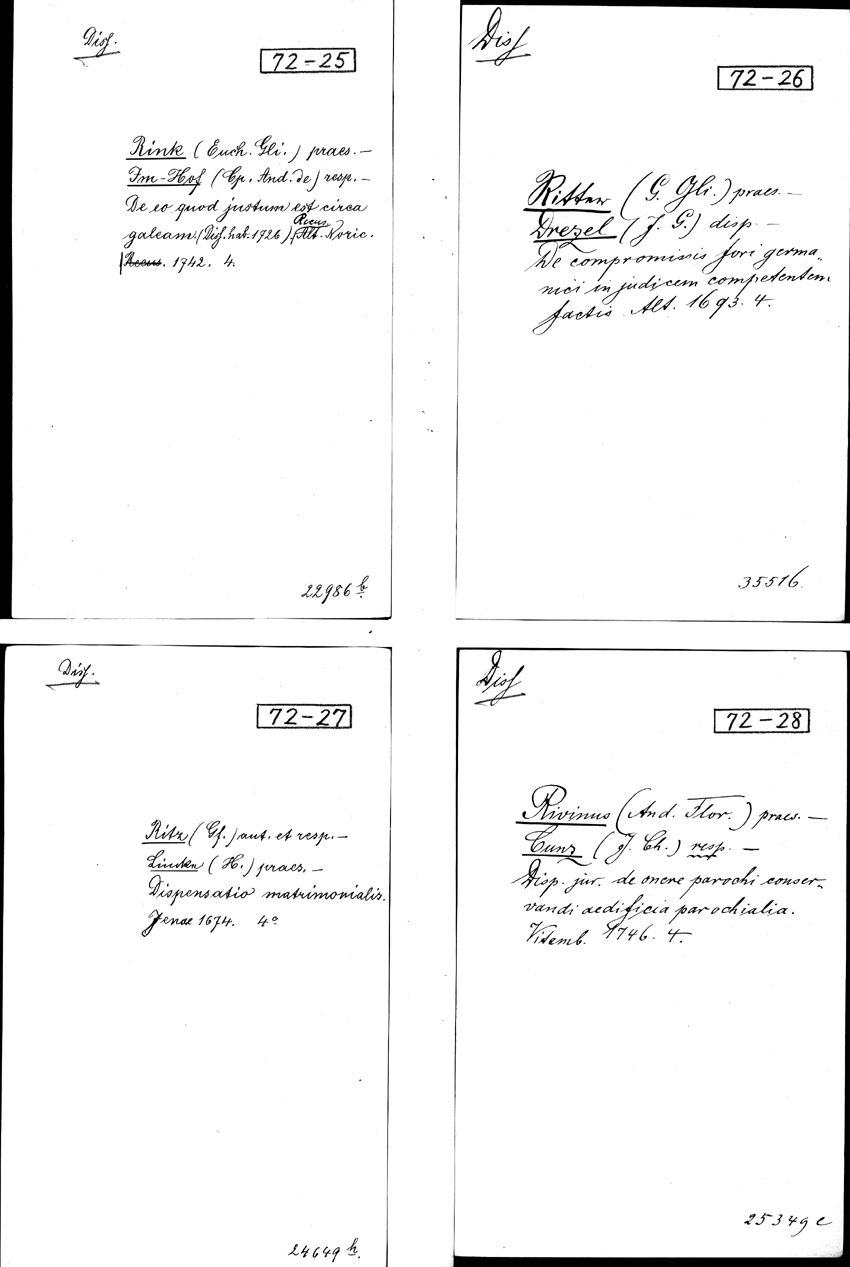 Diss.
72-25
Rink (Euch. Gli.) praes. —
Im-Hof (Cp. And. de) resp. —
De eo quod justum est circa
Recus.
galeam (Diss. hab. 1726) Alt. Noric.
Recus. 1742. 4.
22986 b.
Diss
72-26
Ritter (G. Gli.) praes. —
Drezel (J. G.) disp. —
De compromissis fori germa„
nici in judicem competentem
factis. Alt. 1693. 4.
35516.
Diss.
72-27
Ritz (Gf.) aut. et resp. —
Lincken (H.) praes. —
Dispensatio matrimonialis.
Jenae 1674. 4°
24649 h.
Diss
72-28
Rivinus (And. Flor.) praes. —
Cunz (J. Ch.) resp. —
Disp. jur. de onere parochi conser„
vandi aedificia parochialia.
Vitemb. 1746. 4.
25349 e